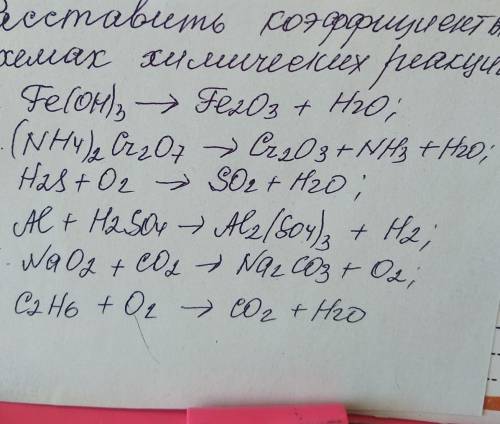 Расставить коэффициенты
схемах химических реакций
Fe(OH)3 → Fe2O3 + H2O;
(NH4)2Cr2O7 → Cr2O3 + NH3 + H2O;
H2S + O2 → SO2 + H2O;
Al + H2SO4 → Al2(SO4)3 + H2;
NaO2 + CO2 → Na2CO3 + O2;
C2H6 + O2 → CO2 + H2O